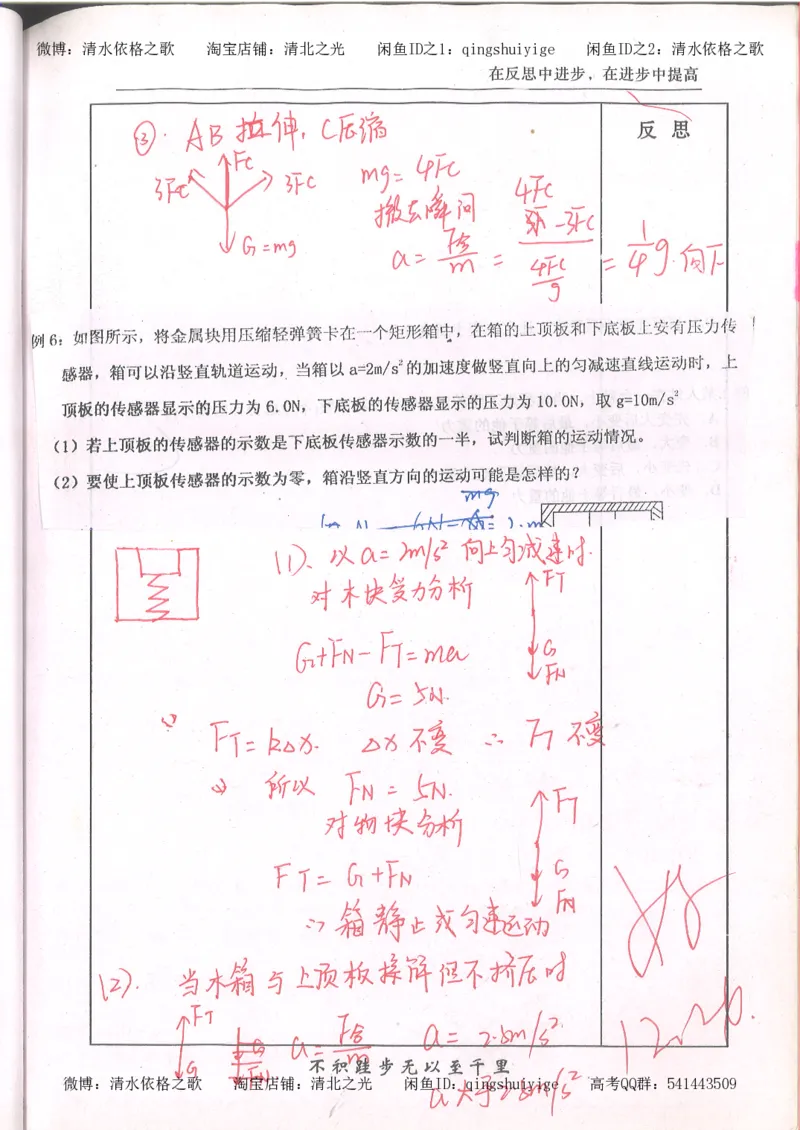 微博：清水依格之歌 淘宝店铺：清北之光 闲鱼ID之1：qingshuiyige 闲鱼ID之2：清水依格之歌
在反思中进步，在进步中提高
反 思
③. AB拉伸, C压缩
Fc
3Fc 3Fc
G=mg
mg=4Fc
撤去瞬间
a= F合/m = (4Fc-3Fc)/(4Fc/g) = 1/4 g. 向下
例 6：如图所示，将金属块用压缩轻弹簧卡在一个矩形箱中，在箱的上顶板和下底板上安有压力传
感器，箱可以沿竖直轨道运动，当箱以 a=2m/s²的加速度做竖直向上的匀减速直线运动时，上
顶板的传感器显示的压力为 6.0N，下底板的传感器显示的压力为 10.0N，取 g=10m/s²
（1）若上顶板的传感器的示数是下底板传感器示数的一半，试判断箱的运动情况。
（2）要使上顶板传感器的示数为零，箱沿竖直方向的运动可能是怎样的？
mg
(1)、以a=2m/s²向上匀减速时.
对木块受力分析
FT
G
FN
G+FN-FT=ma
G=5N.
FT=kΔx. Δx不变 ∴ FT不变
所以 FN=5N.
对物块分析
FT
G
FN
FT=G+FN
∴箱静止或匀速运动
(2). 当木箱与上顶板接触但不挤压时
FT
G
G
FN
a= F合/m a= 2.5m/s².
不积跬步无以至千里
微博：清水依格之歌 淘宝店铺：清北之光 闲鱼ID：qingshuiyige 高考QQ群：541443509
a大于2.5m/s²